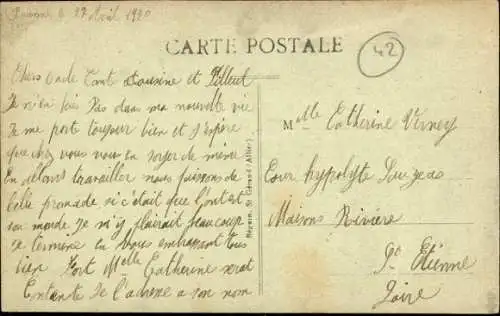 27 Avril 1920
CARTE POSTALE
42
Chers Oncle Tante Cousine et Filleul
Je n'en fais Pas dans ma nouvelle vie
Je me port toujour bien et J'espère
que chez vous vous en soyer de même
En dehors travailler nous faisons de
belle promade si c'était que tout est
son monde. Je m'y plairait beaucoup
Je termine en vous embrassant tous
bien Fort Melle Catherine serat
Contente de l'adresse a son nom
Melle Catherine Verney
Cour hypolyte Sauzeas
Maison Rivière
St Etienne
Loire
St Gérand (Allier)